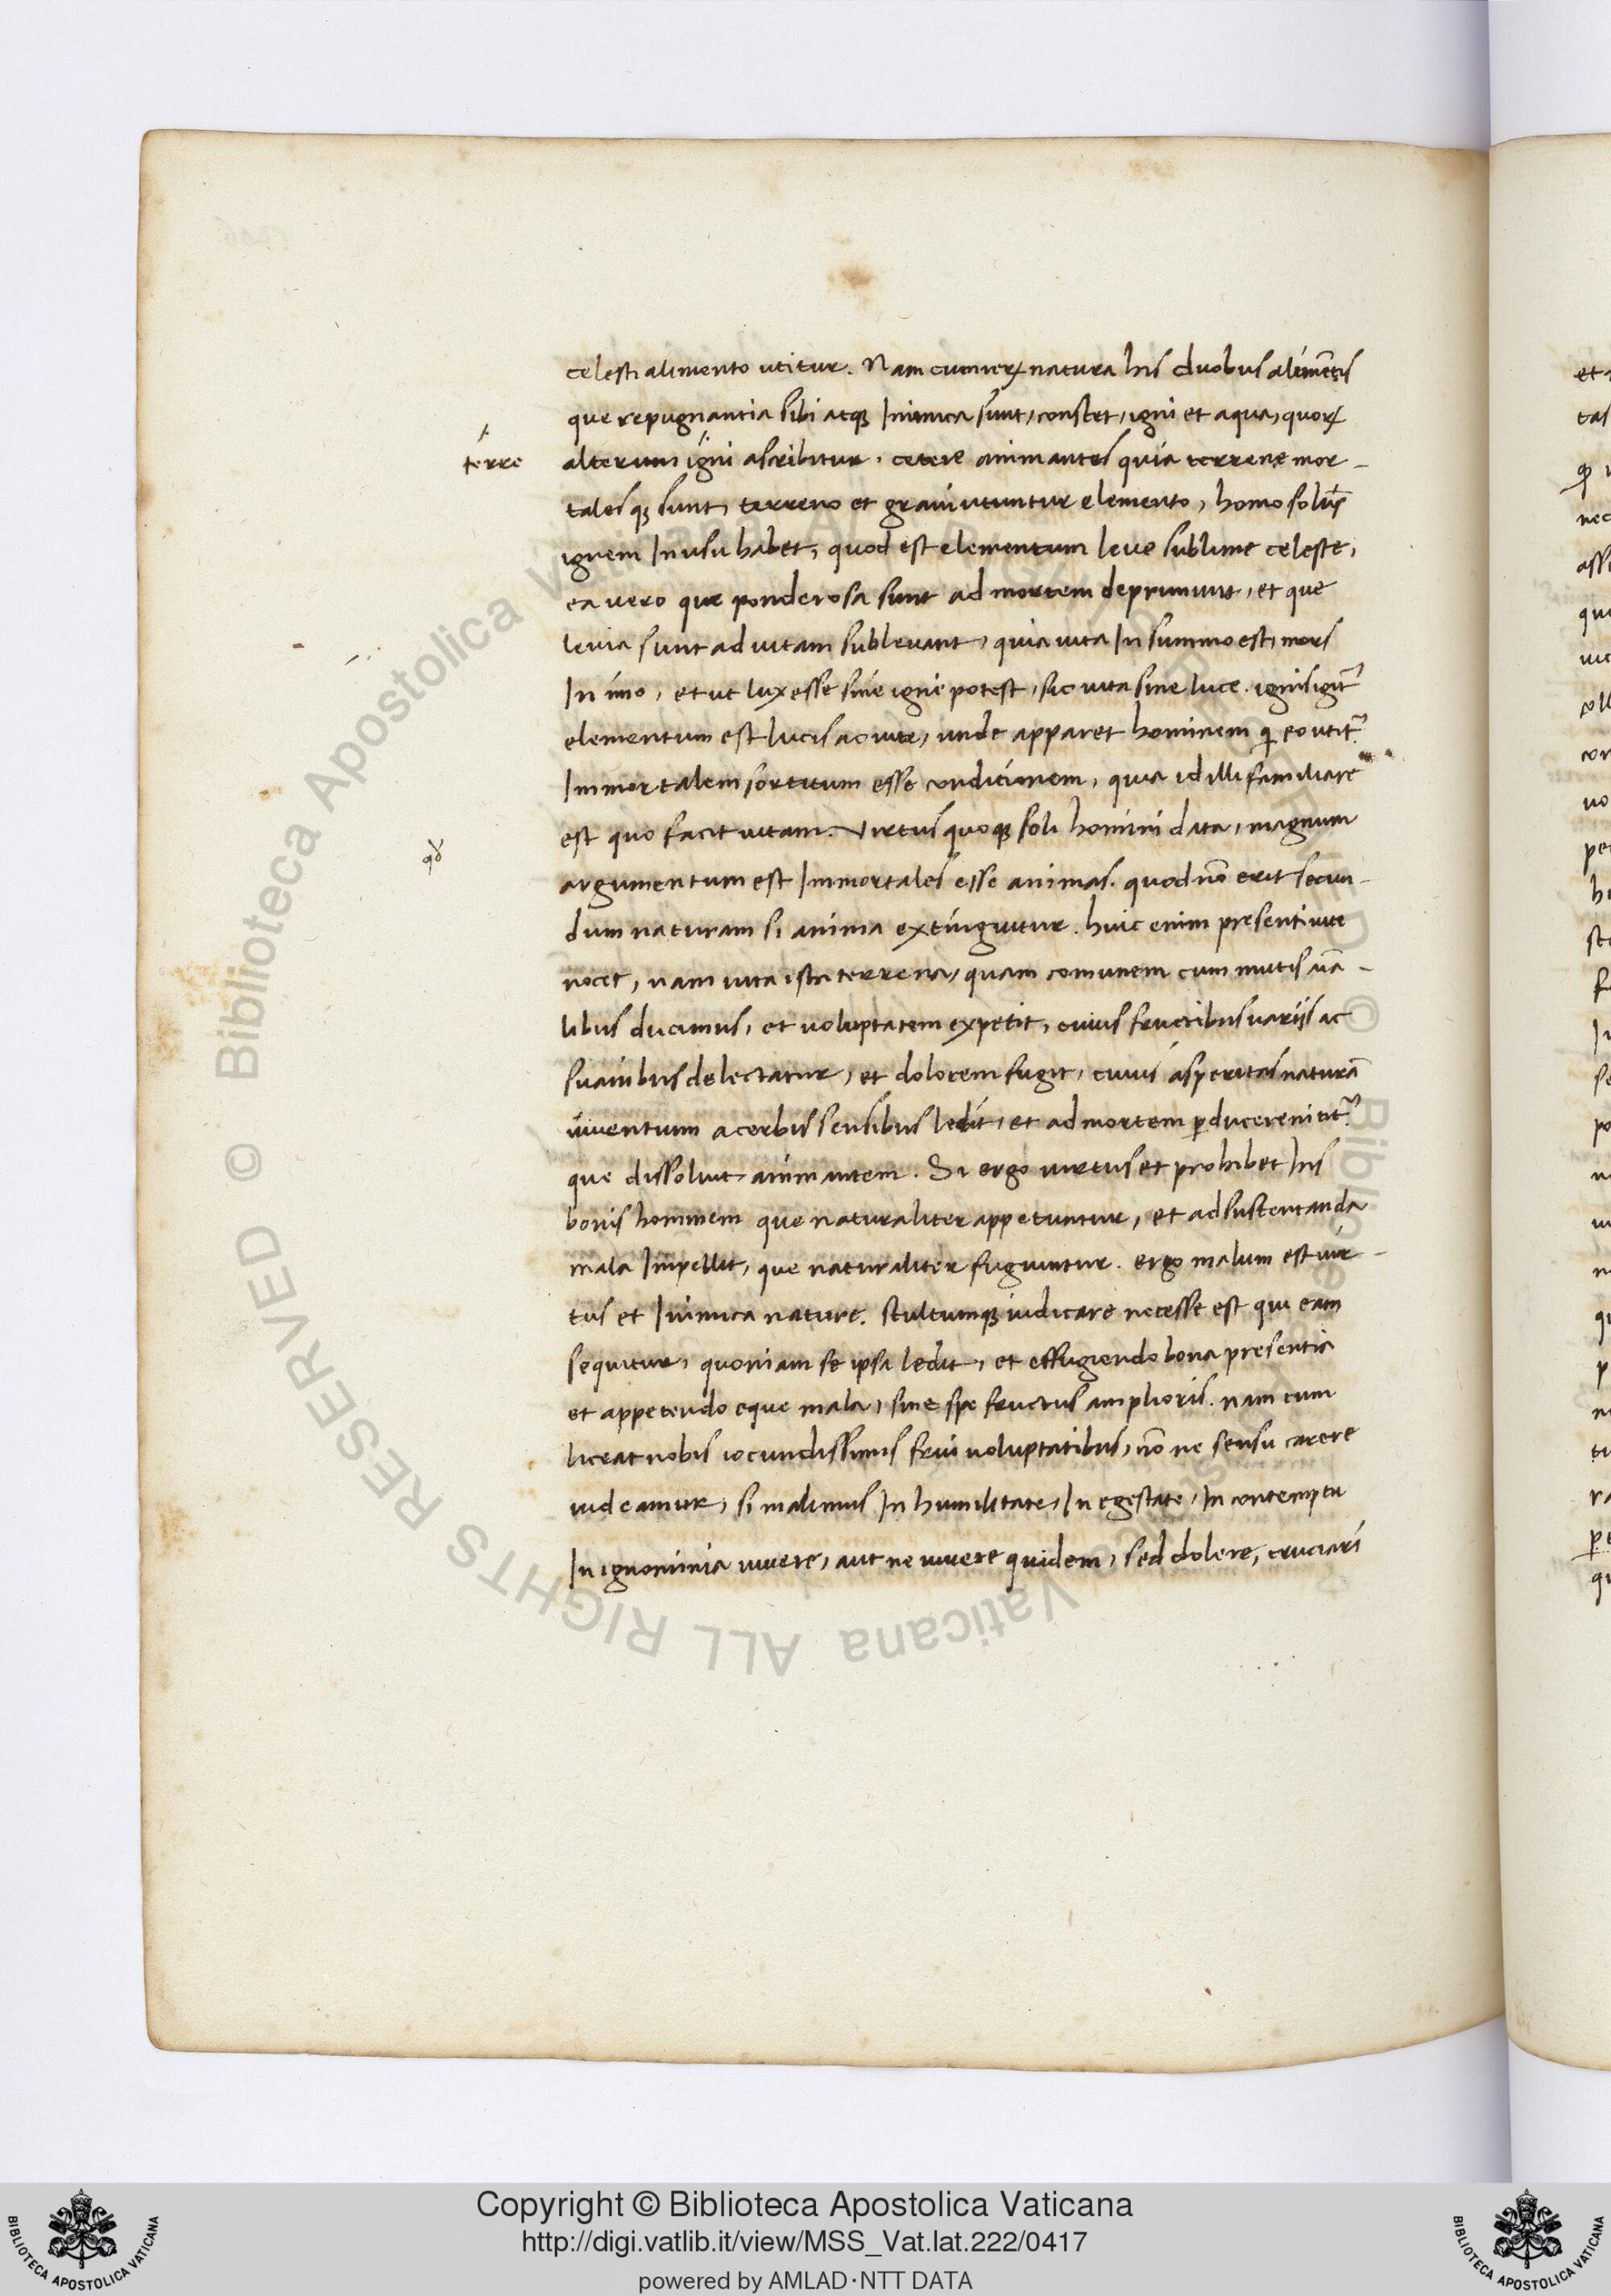 celesti alimento utitur. Nam cum reꝝ natura his duobus alimẽtis
que repugnantia sibi atqꝫ Inimica sunt, constet, igni et aqua, quoꝝ
terre
alterum igni ascribitur. cetere animantes quia terrene mor-
talesqꝫ sunt, terreno et graui utuntur elemento, homo solus
ignem In usu habet, quod est elementum leue sublime celeste,
ea vero que ponderosa sunt ad mortem deprimunt, et que
leuia sunt ad uitam subleuant, quia uita In summo est, mors
In imo, et ut lux esse sine igne potest, sic uita sine luce. ignis igit̃
elementum est lucis ac uite, unde apparet hominem qi eo utit̃
Immortalem sortitum esse condicionem, quia id illi familiare
est quo facit uitam. Virtus quoqꝫ soli homini data, magnum
qđ
argumentum est Immortales esse animas. quod nõ erit secun-
dum naturam si anima extinguitur. huic enim presenti uite
nocet, nam uita ista terrena, quam comunem cum mutis aña-
libus ducimus, et uoluptatem expetit, cuius fructibus uariis ac
suauibus delectatur, et dolorem fugit, cuius asperitas naturã
uiuentium acerbis sensibus ledit, et ad mortem ꝑducere nitit̃
que dissoluit animantem. Si ergo uirtus et prohibet his
bonis hominem que naturaliter appetuntur, et ad sustentanda
mala Impellit, que naturaliter fugiuntur. ergo malum est uir-
tus et Inimica nature. stultumqꝫ iudicare necesse est qui eam
sequitur, quoniam se ipsa ledit, et effugiendo bona presentia
et appetendo eque mala, sine spe fructus amplioris. nam cum
liceat nobis iocundissimis frui uoluptatibus, nõ ne sensu carere
uideamur, si malimus In humilitate, In egestate, In contemptu
In ignominia uiuere, aut ne uiuere quidem, sed dolere, cruciari
Copyright © Biblioteca Apostolica Vaticana
http://digi.vatlib.it/view/MSS_Vat.lat.222/0417
powered by AMLAD·NTT DATA